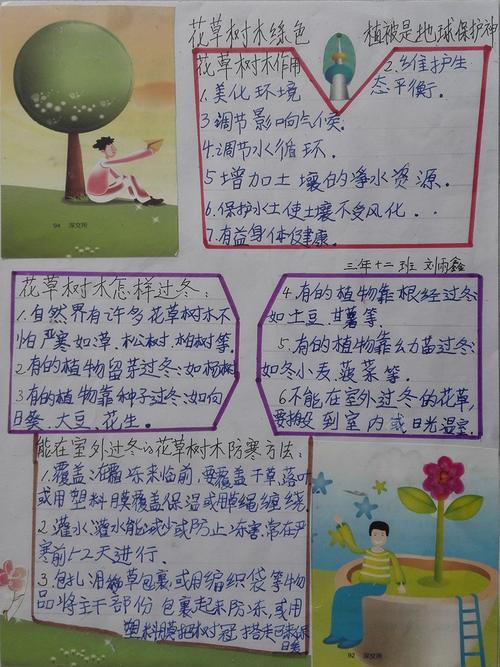 花草树木绿色
植被是地球保护神
花草树木作用
1.美化环境
2.维护生
态平衡.
3调节影响气候.
4.调节水循环.
5增加土壤的净水资源.
6.保护水土使土壤不受风化...
7.有益身体促健康.
三年十二班 刘雨鑫
94 深交所
花草树木怎样过冬:
1.自然界有许多花草树木不
怕严寒如:草.松树.柏树等.
2有的植物留芽过冬:如杨树
3有的植物靠种子过冬:如向
日葵.大豆.花生.
4.有的植物靠根经过冬:
如土豆.甘薯等.
5.有的植物靠幼苗过冬:
如冬小麦.菠菜等.
6不能在室外过冬的花草,
要搬到室内或日光温室.
能在室外过冬的花草树木防寒方法:
1.覆盖:冻来临前,要覆盖干草落叶
或用塑料膜覆盖保温或用绳缠绕
2.灌水灌水能减少或防止冻害.常在严
寒前1-2天进行.
3.包扎:用草包裹,或用编织袋等物
品将主干部份包裹起来防冻,或用
塑料膜把树冠搭起来保
暖
92 深交所